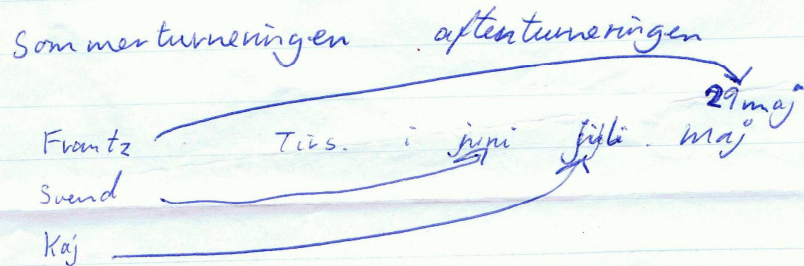 Sommerturneringen aftenturneringen
29 maj
Frantz Tirs. i juni juli. maj
Svend
Kaj